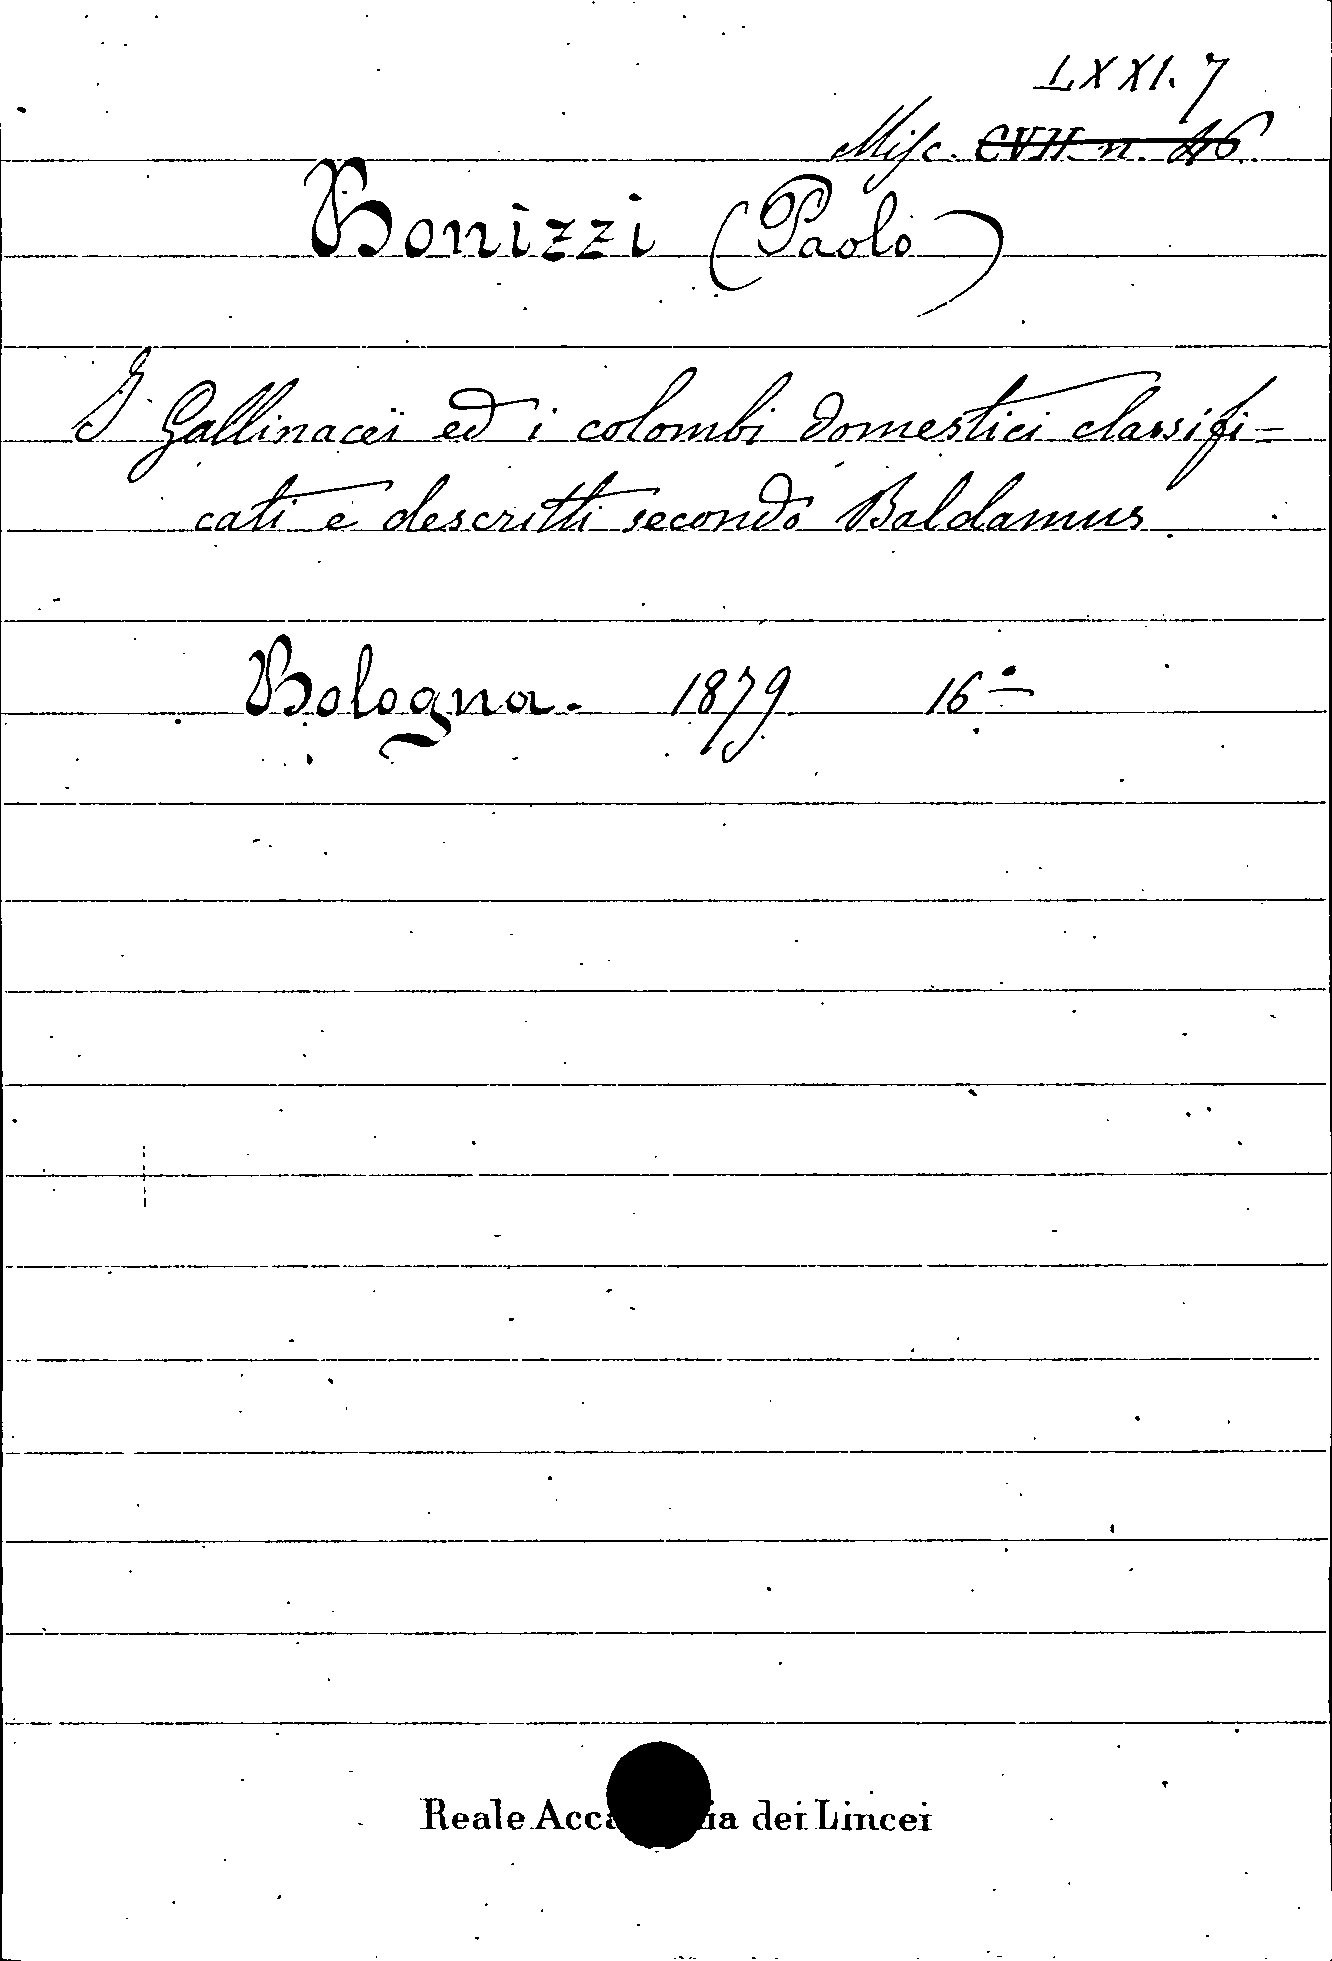 LXXI. 7
Misc. CVII. n. 46
Bonizzi (Paolo)
I Gallinacei ed i colombi domestici classifi-
cati e descritti secondo Baldamus
Bologna. 1879 16°
Reale Acca ia dei Lincei